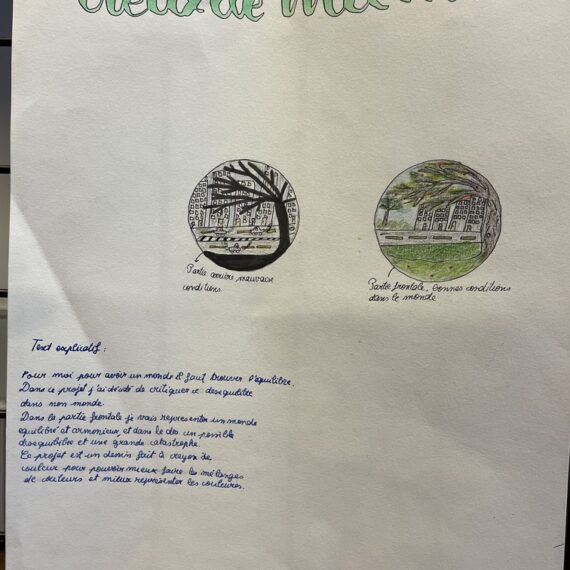 Partie arrière mauvaise
conditions.
Partie frontale. bonnes conditions
dans le monde
Text explicatif:
Pour moi pour avoir un monde il faut trouver l'equilibre.
Dans ce projet j'ai décidé de critiquer ce desequilibre
dans mon monde.
Dans la partie frontale je vais representer un monde
equilibré et armonieux, et dans le dos un possible
desequilibre et une grande catastrophe.
Ce projet est un dessin fait à crayon de
couleur pour pouvoir mieux faire les mélanges
de couleurs et mieux représenter les couleures.